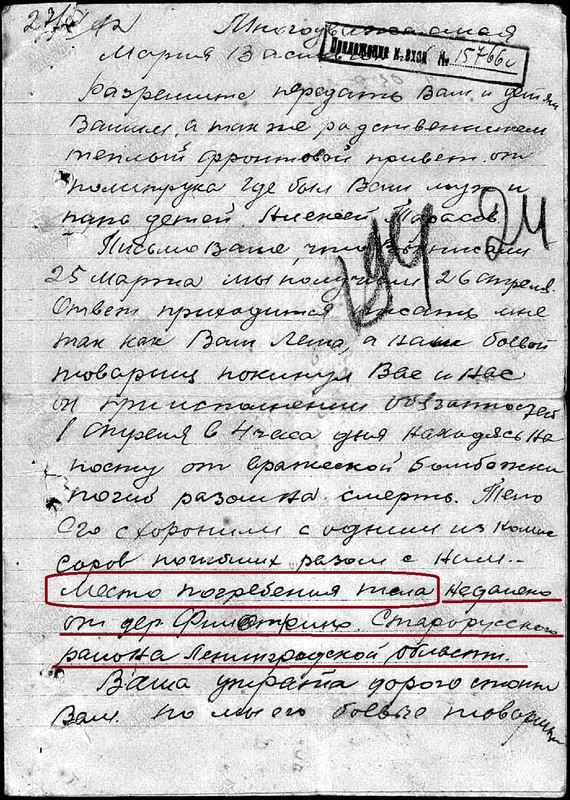 27/IV 42 Многоуважаемая
Мария Вас
Приложение к вход. № 15766с
Разрешите передать Вам и детям
Вашим, а так же родственникам
теплый фронтовой привет от
политрука где был Ваш муж и
папа детей. Алексей Тарасов
194 24
Письмо Ваше, что Вы писали
25 марта мы получили 26 апреля.
Ответ приходится писать мне
так как Ваш Леша, а Наш боевой
товарищ покинул Вас и Нас
он при исполнении обязанностей
1 апреля в 4 часа дня находясь на
посту от вражеской бомбежки
погиб разом на смерть. Тело
Его схоронили с одним из комис
соров погибших разом с Ним..
Место погребения тела недалеко
от дер. Старорусского
района Ленинградской области.
Ваша утрата дорого стоит
Вам. но мы его боевые товарищи